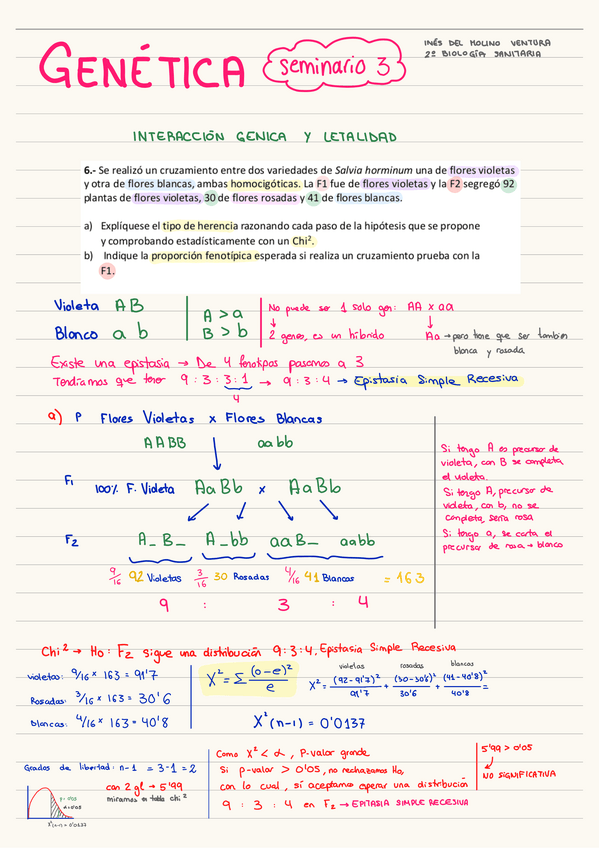 GENÉTICA
seminario 3
INÉS DEL MOLINO VENTURA
2º BIOLOGÍA SANITARIA
INTERACCIÓN GENICA Y LETALIDAD
6.- Se realizó un cruzamiento entre dos variedades de Salvia horminum una de flores violetas
y otra de flores blancas, ambas homocigóticas. La F1 fue de flores violetas y la F2 segregó 92
plantas de flores violetas, 30 de flores rosadas y 41 de flores blancas.
a) Explíquese el tipo de herencia razonando cada paso de la hipótesis que se propone
y comprobando estadísticamente con un Chi².
b) Indique la proporción fenotípica esperada si realiza un cruzamiento prueba con la
F1.
Violeta AB
Blanco ab
A > a
B > b
No puede ser 1 solo gen: AA x aa
↓ ↓
2 genes, es un híbrido Aa → pero tiene que ser tambien
blanca y rosada
Existe una epistasia → De 4 fenotipos pasamos a 3
Tendriamos que tener 9:3:3:1 → 9:3:4 → Epistasia Simple Recesiva
4
a) P Flores Violetas x Flores Blancas
AABB aabb
F1 100% F. Violeta AaBb x AaBb
F2 A_B_ A_bb aaB_ aabb
9/16 92 Violetas 3/16 30 Rosadas 4/16 41 Blancas = 163
9 : 3 : 4
Si tengo A es precursor de
violeta, con B se completa
el violeta.
Si tengo A, precursor de
violeta, con b, no se
completa, sería rosa
Si tengo a, se corta el
precursor de rosa → blanco
Chi² → Ho: F2 sigue una distribución 9:3:4, Epistasia Simple Recesiva
violetas: 9/16 x 163 = 91'7
Rosadas: 3/16 x 163 = 30'6
blancas: 4/16 x 163 = 40'8
X² = Σ (o-e)²/e
violetas rosadas blancas
X² = (92-91'7)²/91'7 + (30-30'6)²/30'6 + (41-40'8)²/40'8 =
X² (n-1) = 0'0137
Grados de libertad: n-1 = 3-1 = 2
con 2 gl → 5'99
miramos en tabla chi²
X²(n-1) = 0'0137
Como X² < α, P-valor grande
Si p-valor > 0'05, no rechazamos Ho,
con lo cual, sí aceptamos operar una distribución
9 : 3 : 4 en F2 → EPITASIA SIMPLE RECESIVA
5'99 > 0'05
↓
NO SIGNIFICATIVA